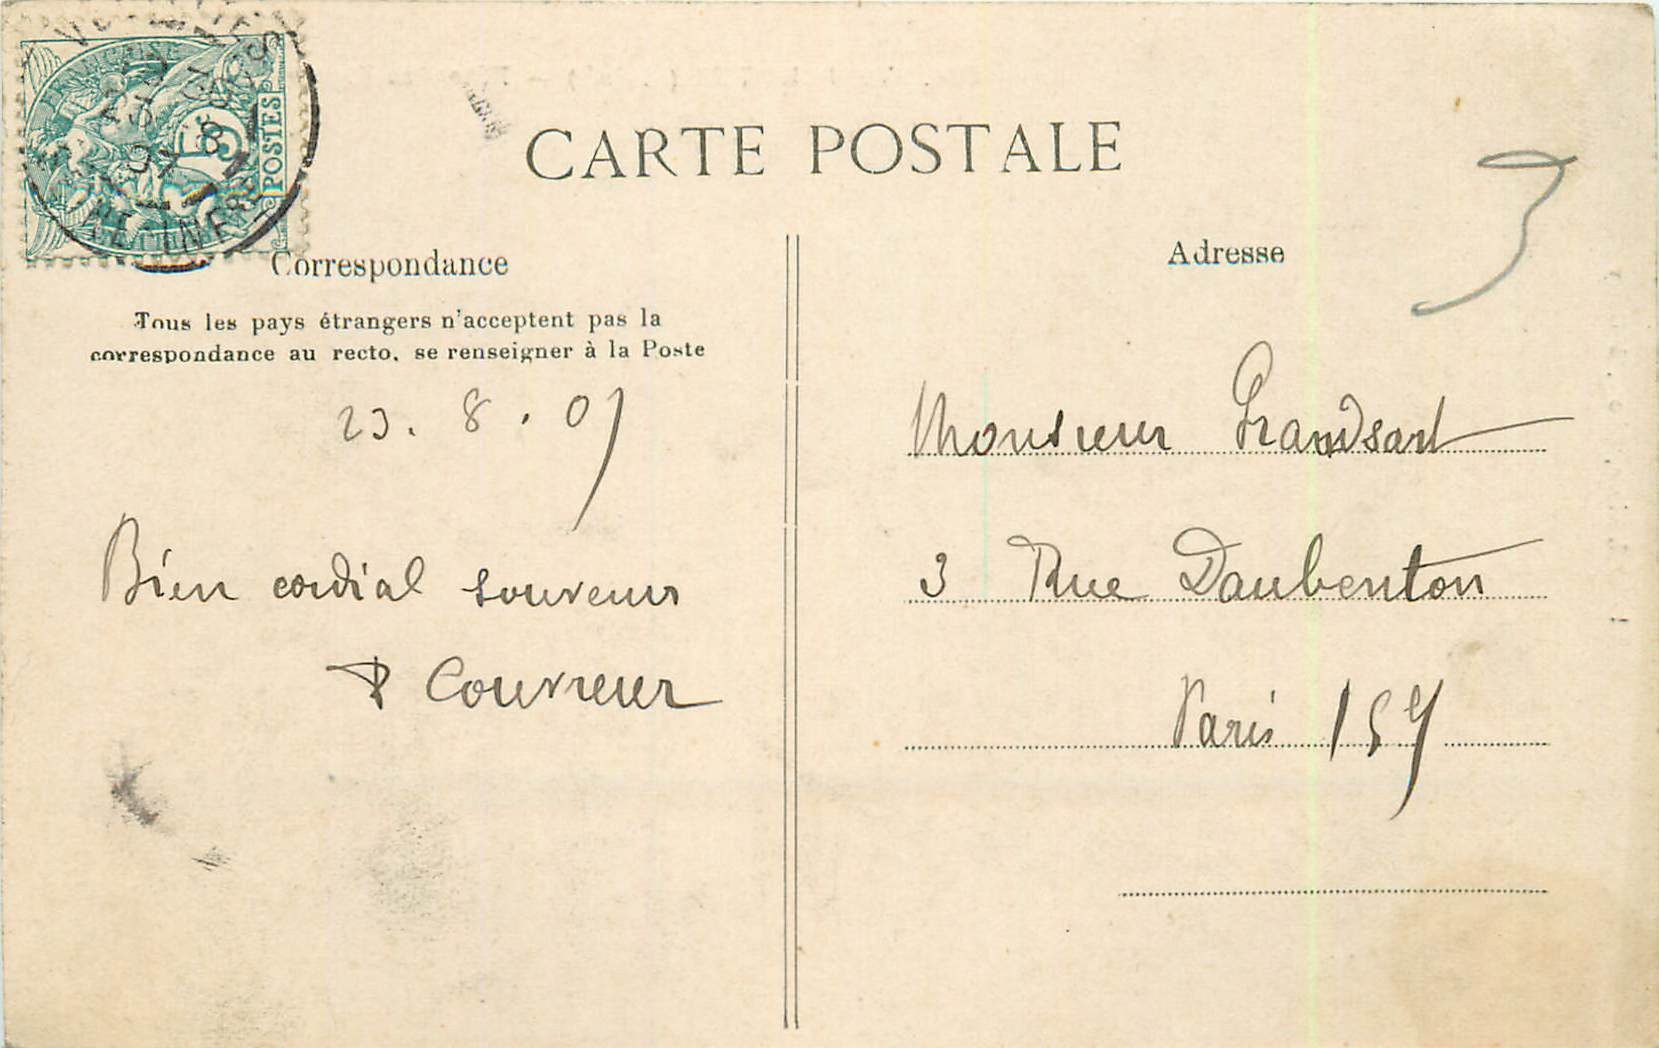 POSTES
5
CARTE POSTALE
Correspondance
Tous les pays étrangers n'acceptent pas la
correspondance au recto, se renseigner à la Poste
23. 8. 07
Bien cordial souvenir
P Couvreur
Adresse
3
Monsieur Grandsart
3 Rue Daubenton
Paris